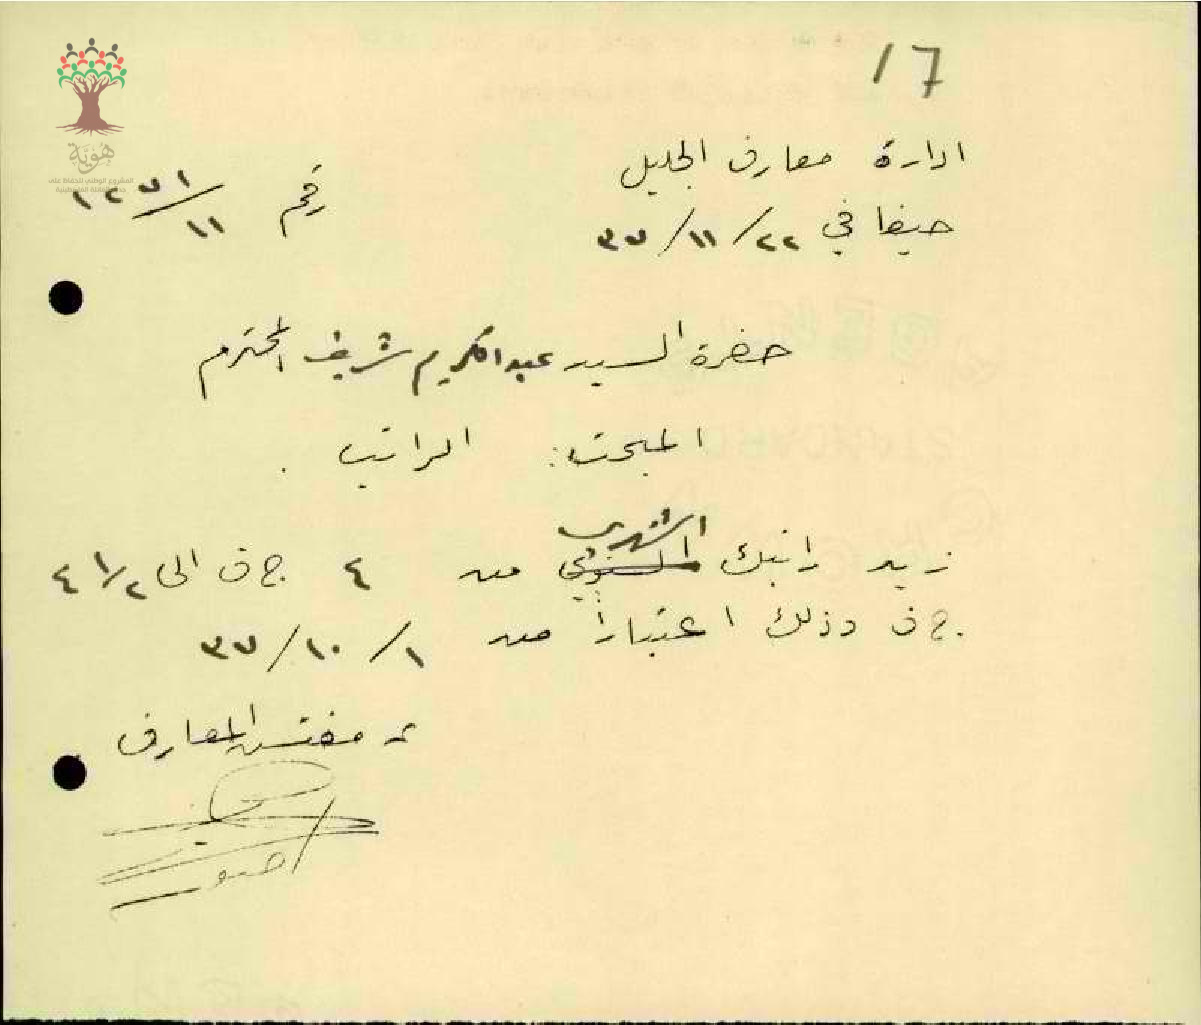 17
ادارة معارف الجليل
حيفا في ٢٢/١١/٣٧
رقم ١٢٧١/١١
حضرة السيد عبد الكريم شريف المحترم
المبحث: الراتب.
الشهري
زيد راتبك السنوي من ٤ ج ف الى ٤ ١/٢
ج ف وذلك اعتباراً من ١/١٠/٣٧
عن مفتش المعارف
هُوِيَّة
المشروع الوطني للحفاظ على
جذور العائلة الفلسطينية